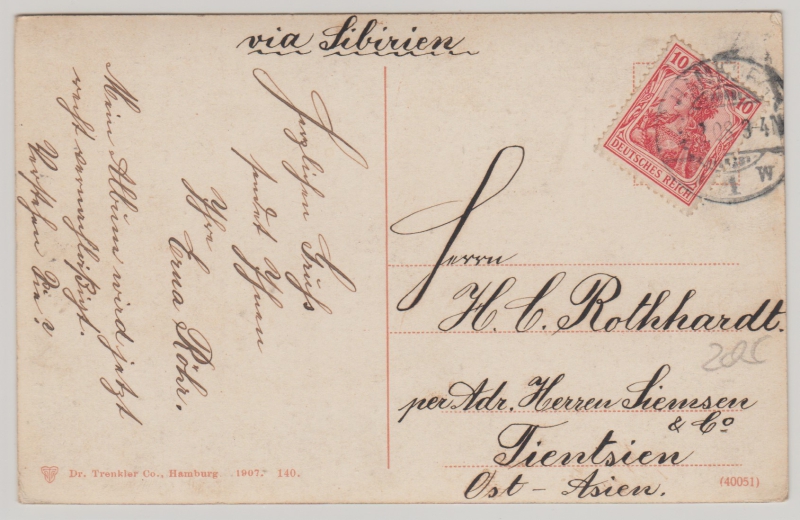 via Sibirien
Mein Album wird jetzt
recht vernachläßigt.
Verstehen Sie?
Herzlichen Gruß
sendet Ihnen
Ihre
Erna Röhr.
10 10
DEUTSCHES REICH
3-4N
1 W
Herrn
H. C. Rothhardt.
per Adr. Herren Siemsen
& Co
Tientsien
Ost-Asien.
Dr. Trenkler Co., Hamburg 1907. 140.
(40051)